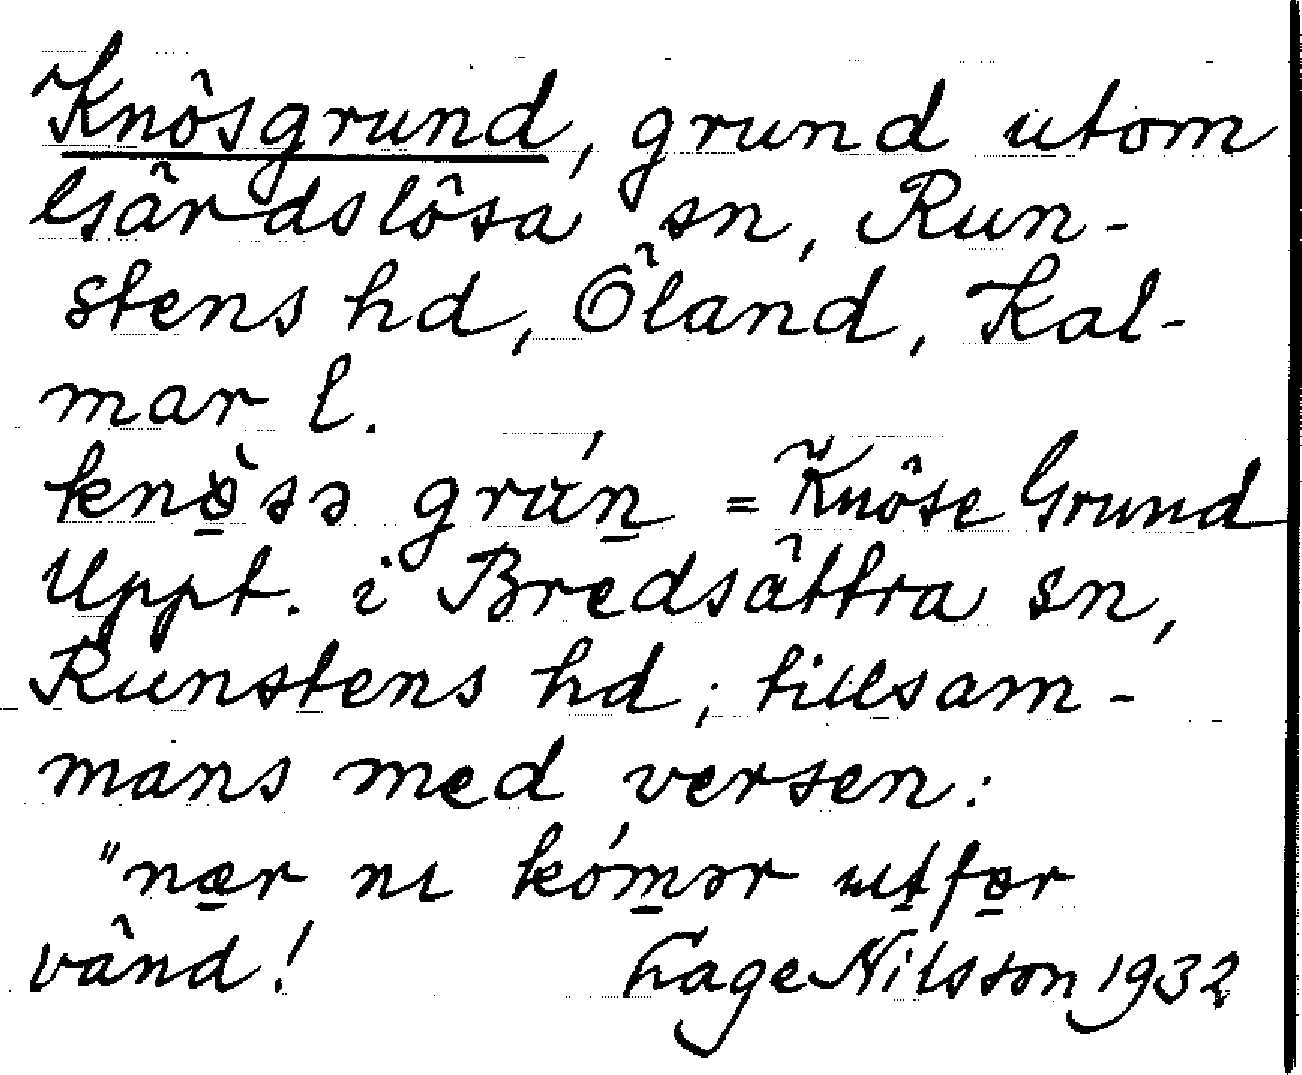 Knösgrund, grund utom
Gärdslösa sn, Run-
stens hd, Öland, Kal-
mar l.
knø̀sə grún = Knöse Grund
Uppt. i Bredsättra sn,
Runstens hd; tillsam-
mans med versen:
"nær nɩ kómər utfør
vänd! Lage Nilsson 1932